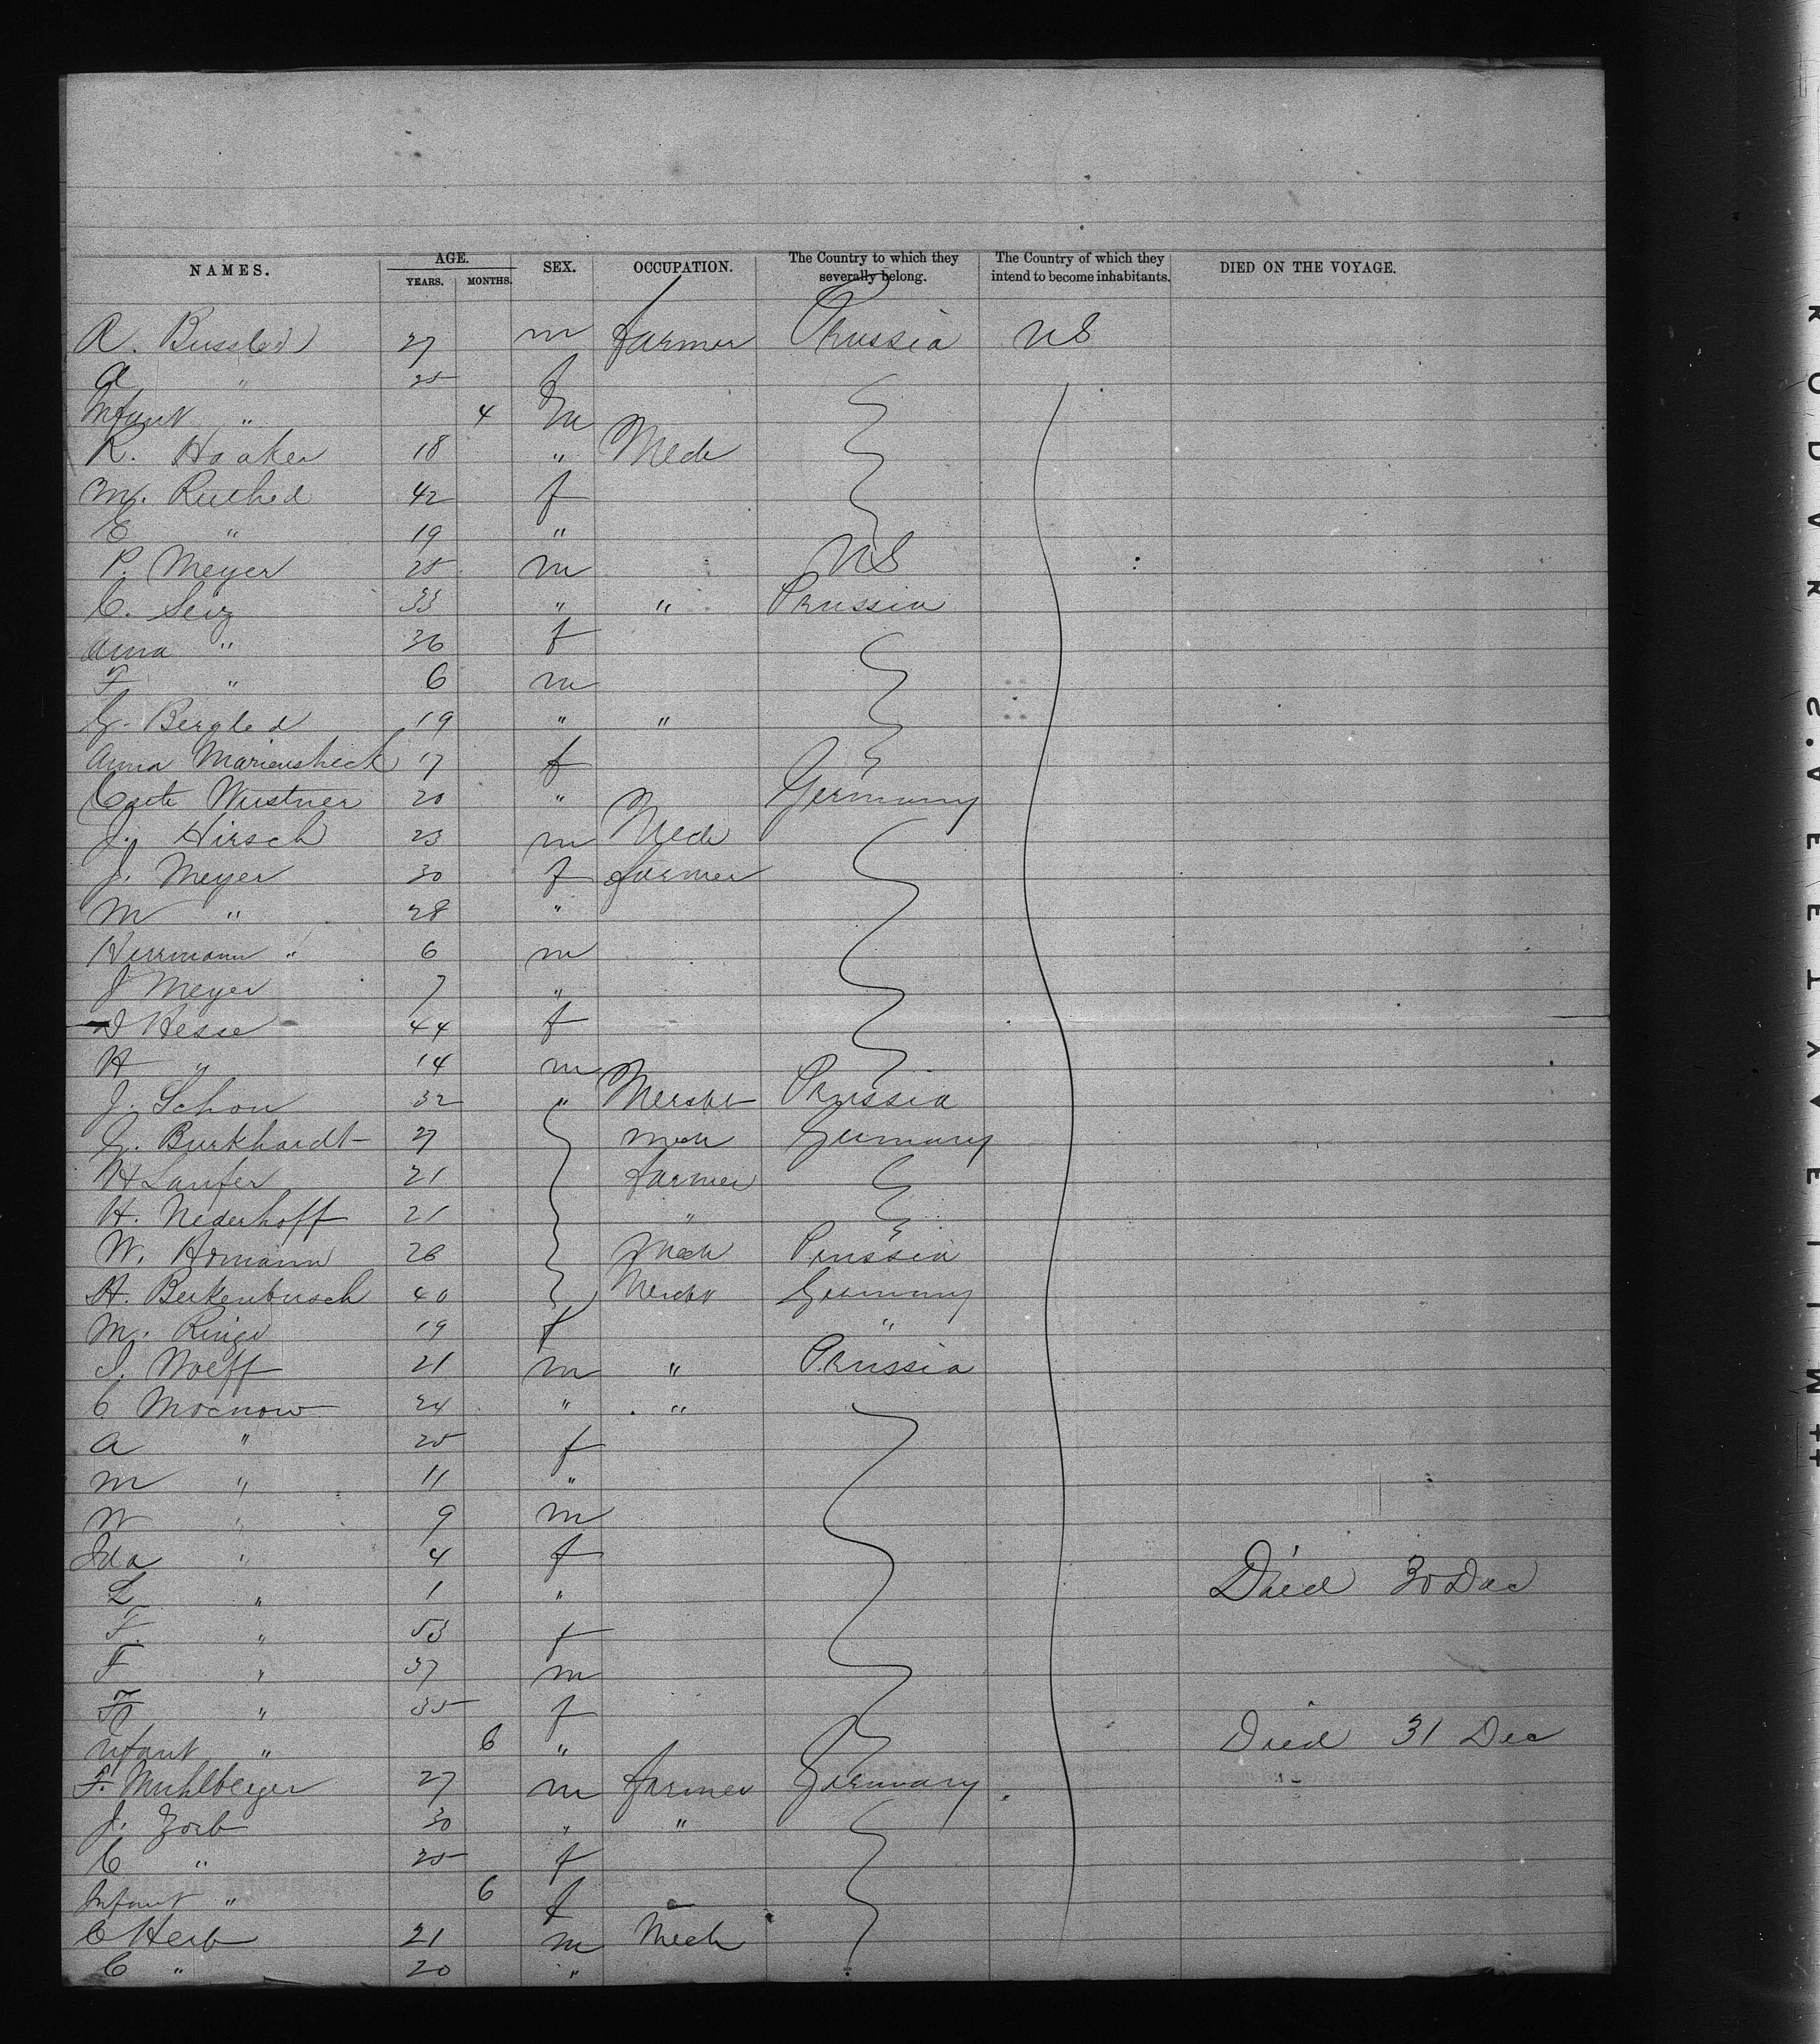 NAMES. AGE. YEARS. MONTHS. SEX. OCCUPATION. The Country to which they severally belong. The Country of which they intend to become inhabitants. DIED ON THE VOYAGE.
R. 27 m farmer Prussia US
A " 25 f
Infant " 4 m
R. Haaker 18 " Mech
M. 42 f
E " 19 "
P. Meyer 25 m US
C. Seiz 33 " " Prussia
Anna " 36 f
F " 6 m
G. 19 " "
Anna 17 f
Wustner 20 " Germany
J. Hirsch 23 m Mech
J. Meyer 30 f farmer
M " 28 "
Herrmann " 6 m
J Meyer 7 "
D Hesse 44 f
H " 14 m
J. Schon 32 " Prussia
G. Burkhardt 27 Mech Germany
H Laufer 21 farmer
H. Nederhoff 21 "
W. Homann 26 Mech Prussia
H. Berkenbusch 40 Germany
M. Ringe 19 f "
21 m " Prussia
C 24 " "
A " 25 f
M " 11 "
W " 9 m
Ida " 4 f
L " 1 " Died 30 Dec
F. " 53 f
F " 37 m
F " 35 f
Infant " 6 " Died 31 Dec
F. Muhlberger 27 m farmer Germany
J. Zorb 30 " "
C " 25 f
Infant " 6 f
C Herb 21 m Mech
C " 20 "